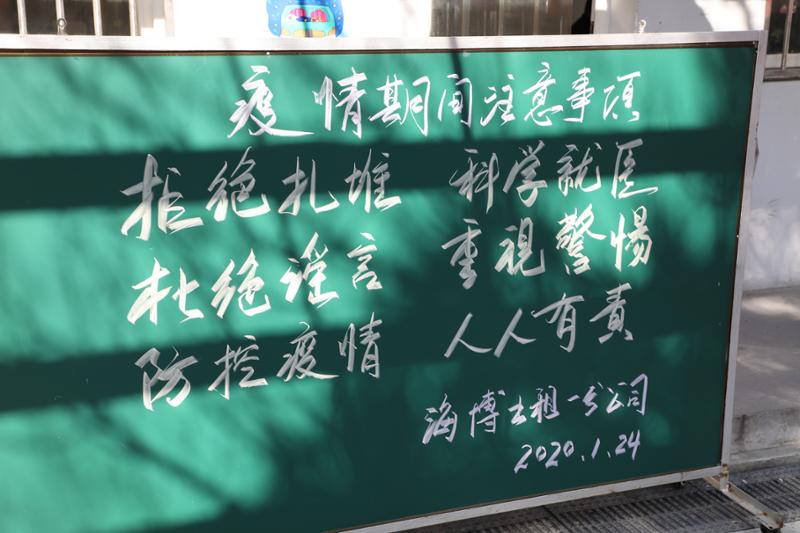 疫情期间注意事项
拒绝扎堆 科学就医
杜绝谣言 重视警惕
防控疫情 人人有责
海博出租一分公司
2020.1.24